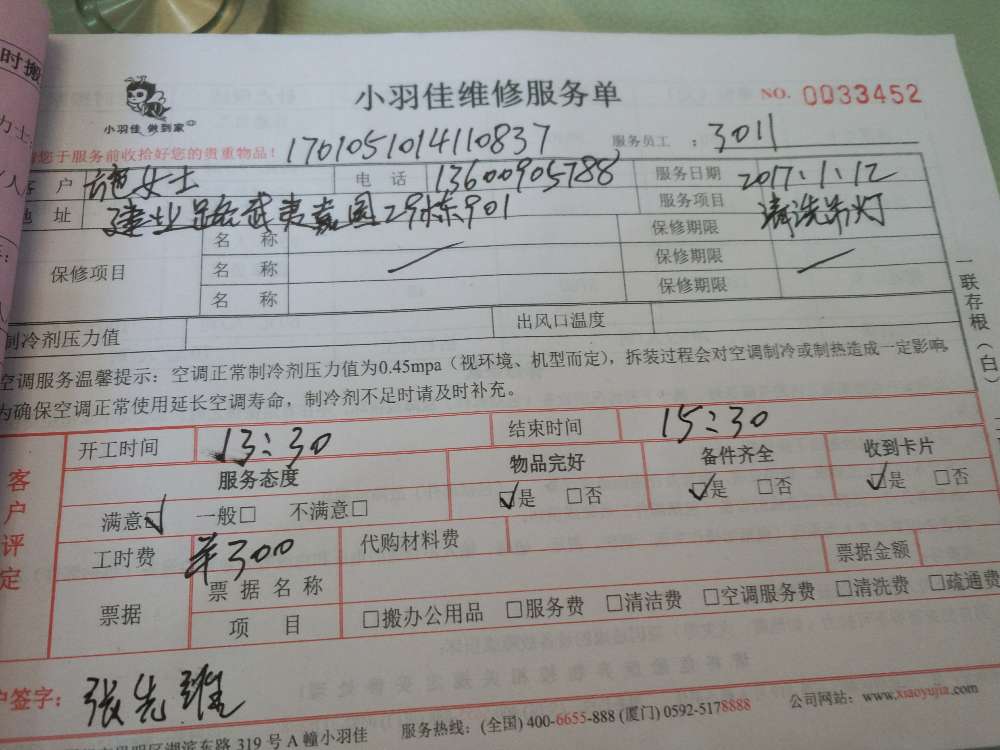 时搬
小羽佳 做到家
小羽佳维修服务单
NO. 0033452
您于服务前收拾好您的贵重物品！
1701051014110837
服务员工 ：3011
客 户 女士 电 话 13600905788 服务日期 2017.1.12
地 址 建业路武夷嘉园29栋901 服务项目 清洗吊灯
保修项目 名 称 保修期限
名 称 保修期限
名 称 保修期限
制冷剂压力值 出风口温度
一联存根（白）
空调服务温馨提示：空调正常制冷剂压力值为0.45mpa（视环境、机型而定），拆装过程会对空调制冷或制热造成一定影响，
为确保空调正常使用延长空调寿命，制冷剂不足时请及时补充。
客户评定
开工时间 13:30 结束时间 15:30
服务态度 物品完好 备件齐全 收到卡片
满意☑ 一般□ 不满意□ ☑是 □否 ☑是 □否 ☑是 □否
工时费 ¥300 代购材料费
票据 票据名称 票据金额
项 目 □搬办公用品 □服务费 □清洁费 □空调服务费 □清洗费 □疏通费
户签字：张先
湖滨东路 319 号 A 幢小羽佳 服务热线：(全国) 400-6655-888 (厦门) 0592-5178888 公司网站：www.xiaoyujia.com